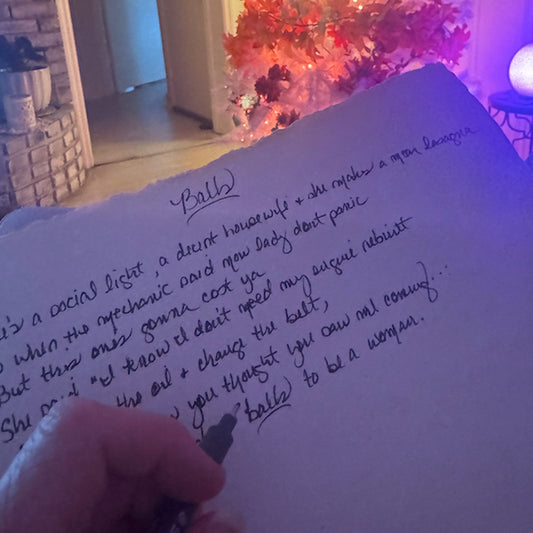 Balls
's a social light, a decent housewife & she makes a mean lasagna
when the mechanic said now lady don't panic
But this ones gonna cost ya
She said "I know I don't need my engine rebuilt
the oil & change the belt,
you thought you saw me coming...
balls to be a woman.